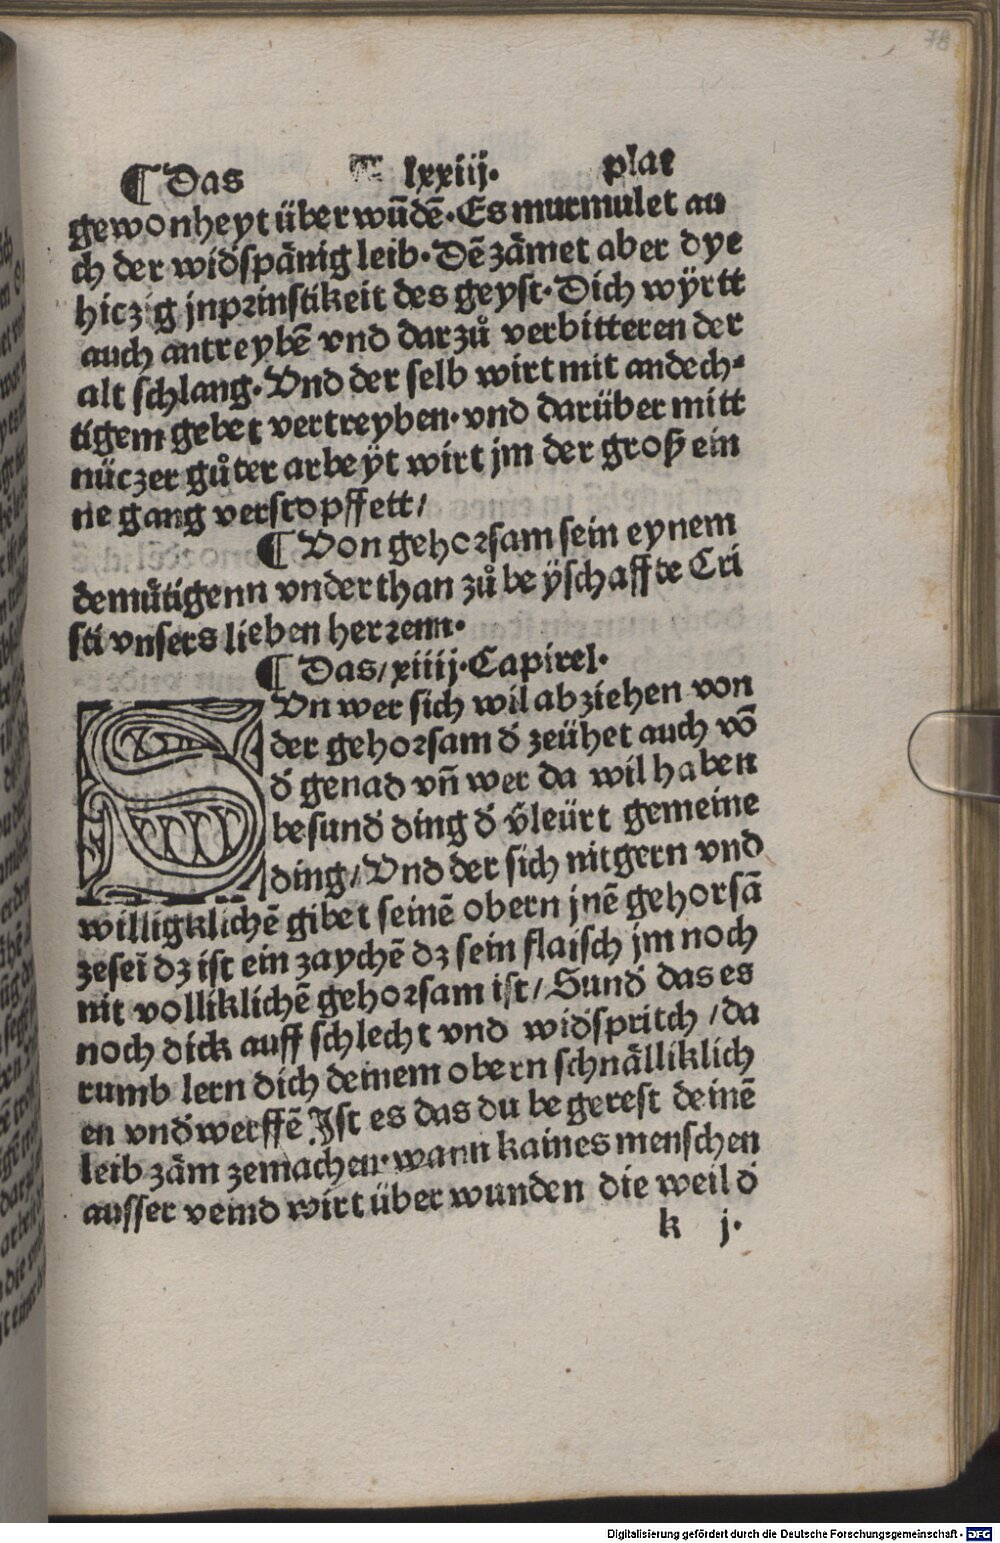 78
¶ Das lxxiij. plat
gewonheyt über wūdē. Es murmulet au
ch der widspänig leib. Dē zämet aber dye
hiczig jnprinstikeit des geyst. Dich wÿrtt
auch antreybē vnd darzů verbitteren der
alt schlang. Vnd der selb wirt mit andech⸗
tigem gebet vertreyben. vnd darüber mitt
nüczer gůter arbeÿt wirt jm der groß ein
ne gang verstopffett/
¶ Von gehorsam sein eynem
demůtigenn vnderthan zů beÿschaffte Cri
sti vnsers lieben herrenn.
¶ Das/xiiij. Capitel.
SVn wer sich wil abziehen von
der gehorsam d' zeühet auch vō
d' genad vn̄ wer da wil haben
besund' ding d' v̄leürt gemeine
ding/Vnd der sich nit gern vnd
willigklichē gibet seinē obern jnē gehorsā
zeseī dz ist ein zaychē dz sein flaisch jm noch
nit volliklichē gehorsam ist/Sund' das es
noch dick auff schlecht vnd widspritch/da
rumb lern dich deinem obern schnälliklich
en vnd'werffē Ist es das du begerest deinē
leib zäm zemachen. wann kaines menschen
ausser veind wirt über wunden die weil d'
k j.
Digitalisierung gefördert durch die Deutsche Forschungsgemeinschaft - DFG